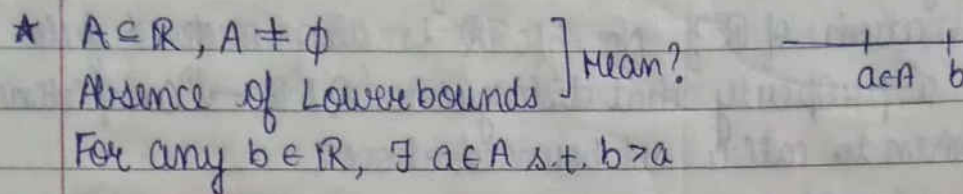 ★ A ⊆ ℝ, A ≠ ϕ
Absence of Lowerbounds ] Mean?
a∈A b
For any b ∈ ℝ, ∃ a∈A s.t. b>a